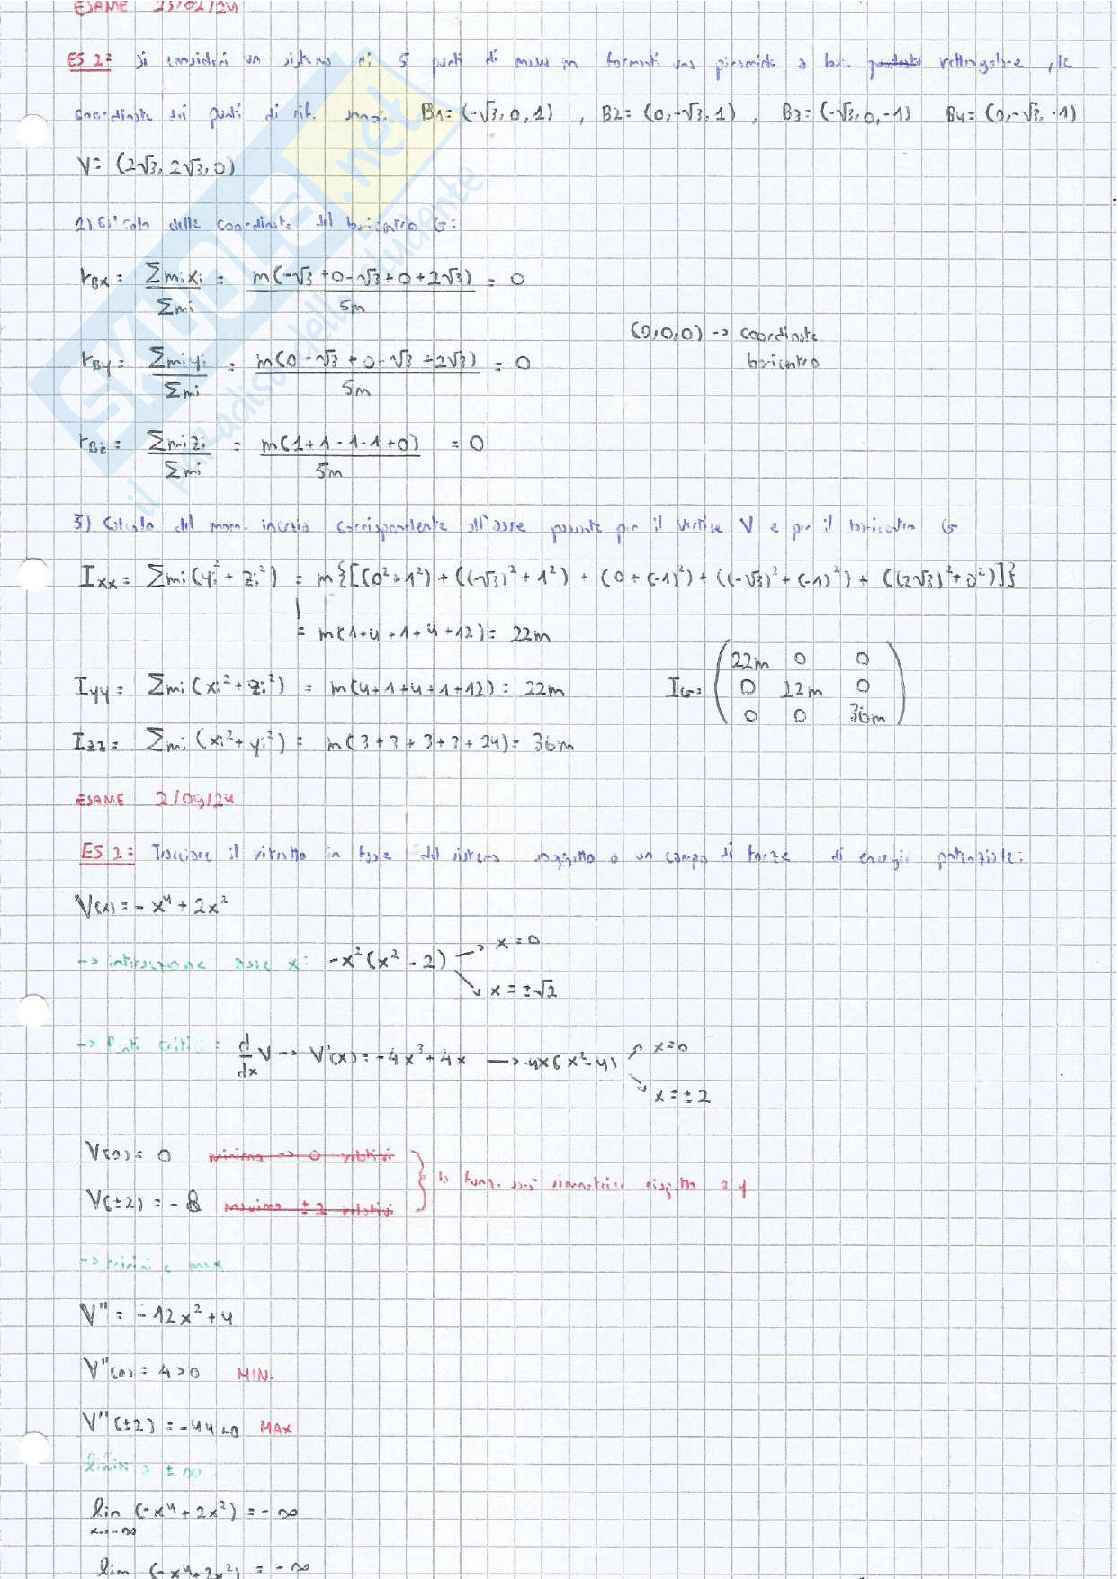 ESAME 23/02/24
ES 2: Si consideri un sistema di 5 punti di massa m formanti una piramide a base rettangolare, le
coordinate dei punti di rif. sono: B1= (-√3, 0, 1) , B2= (0, -√3, 1) , B3= (-√3, 0, -1) B4= (0, -√3, -1)
V= (2√3, 2√3, 0)
2) Calcolo delle coordinate del baricentro G:
rBx = Σmixi / Σmi = m(-√3 + 0 - √3 + 0 + 2√3) / 5m = 0
(0,0,0) -> coordinate
baricentro
rBy = Σmiyi / Σmi = m(0 - √3 + 0 - √3 + 2√3) / 5m = 0
rBz = Σmizi / Σmi = m(1 + 1 - 1 - 1 + 0) / 5m = 0
3) Calcolo del mom. inerzia corrispondente all'asse passante per il vertice V e per il baricentro G
Ixx = Σmi(yi² + zi²) = m{[(0² + 1²) + ((-√3)² + 1²) + (0 + (-1)²) + ((-√3)² + (-1)²) + ((2√3)² + 0²)]}
= m(1 + 4 + 1 + 4 + 12) = 22m
Iyy = Σmi(xi² + zi²) = m(4 + 1 + 4 + 1 + 12) = 22m
IG = (22m 0 0
0 22m 0
0 0 36m)
Izz = Σmi(xi² + yi²) = m(3 + 3 + 3 + 3 + 24) = 36m
ESAME 2/04/24
ES 2: Tracciare il ritratto in fase del sistema soggetto a un campo di forze di energia potenziale:
V(x) = - x⁴ + 2x²
-> intersezione asse x: -x²(x² - 2) x = 0
x = ±√2
-> Punti critici: d/dx V -> V'(x) = -4x³ + 4x -> -4x(x² - 4) x=0
x = ±2
V(0) = 0 minimo -> 0 relativi
V(±2) = -8 massimo ±2 relativi
la funz. sarà simmetrica rispetto a y
-> minimi e max
V'' = -12x² + 4
V''(0) = 4 > 0 MIN.
V''(±2) = -44 <0 MAX
limiti a ±∞
lim x->-∞ (-x⁴ + 2x²) = -∞
lim (-x⁴ + 2x²) = -∞
SKUOLA.net
il paradiso dello studente